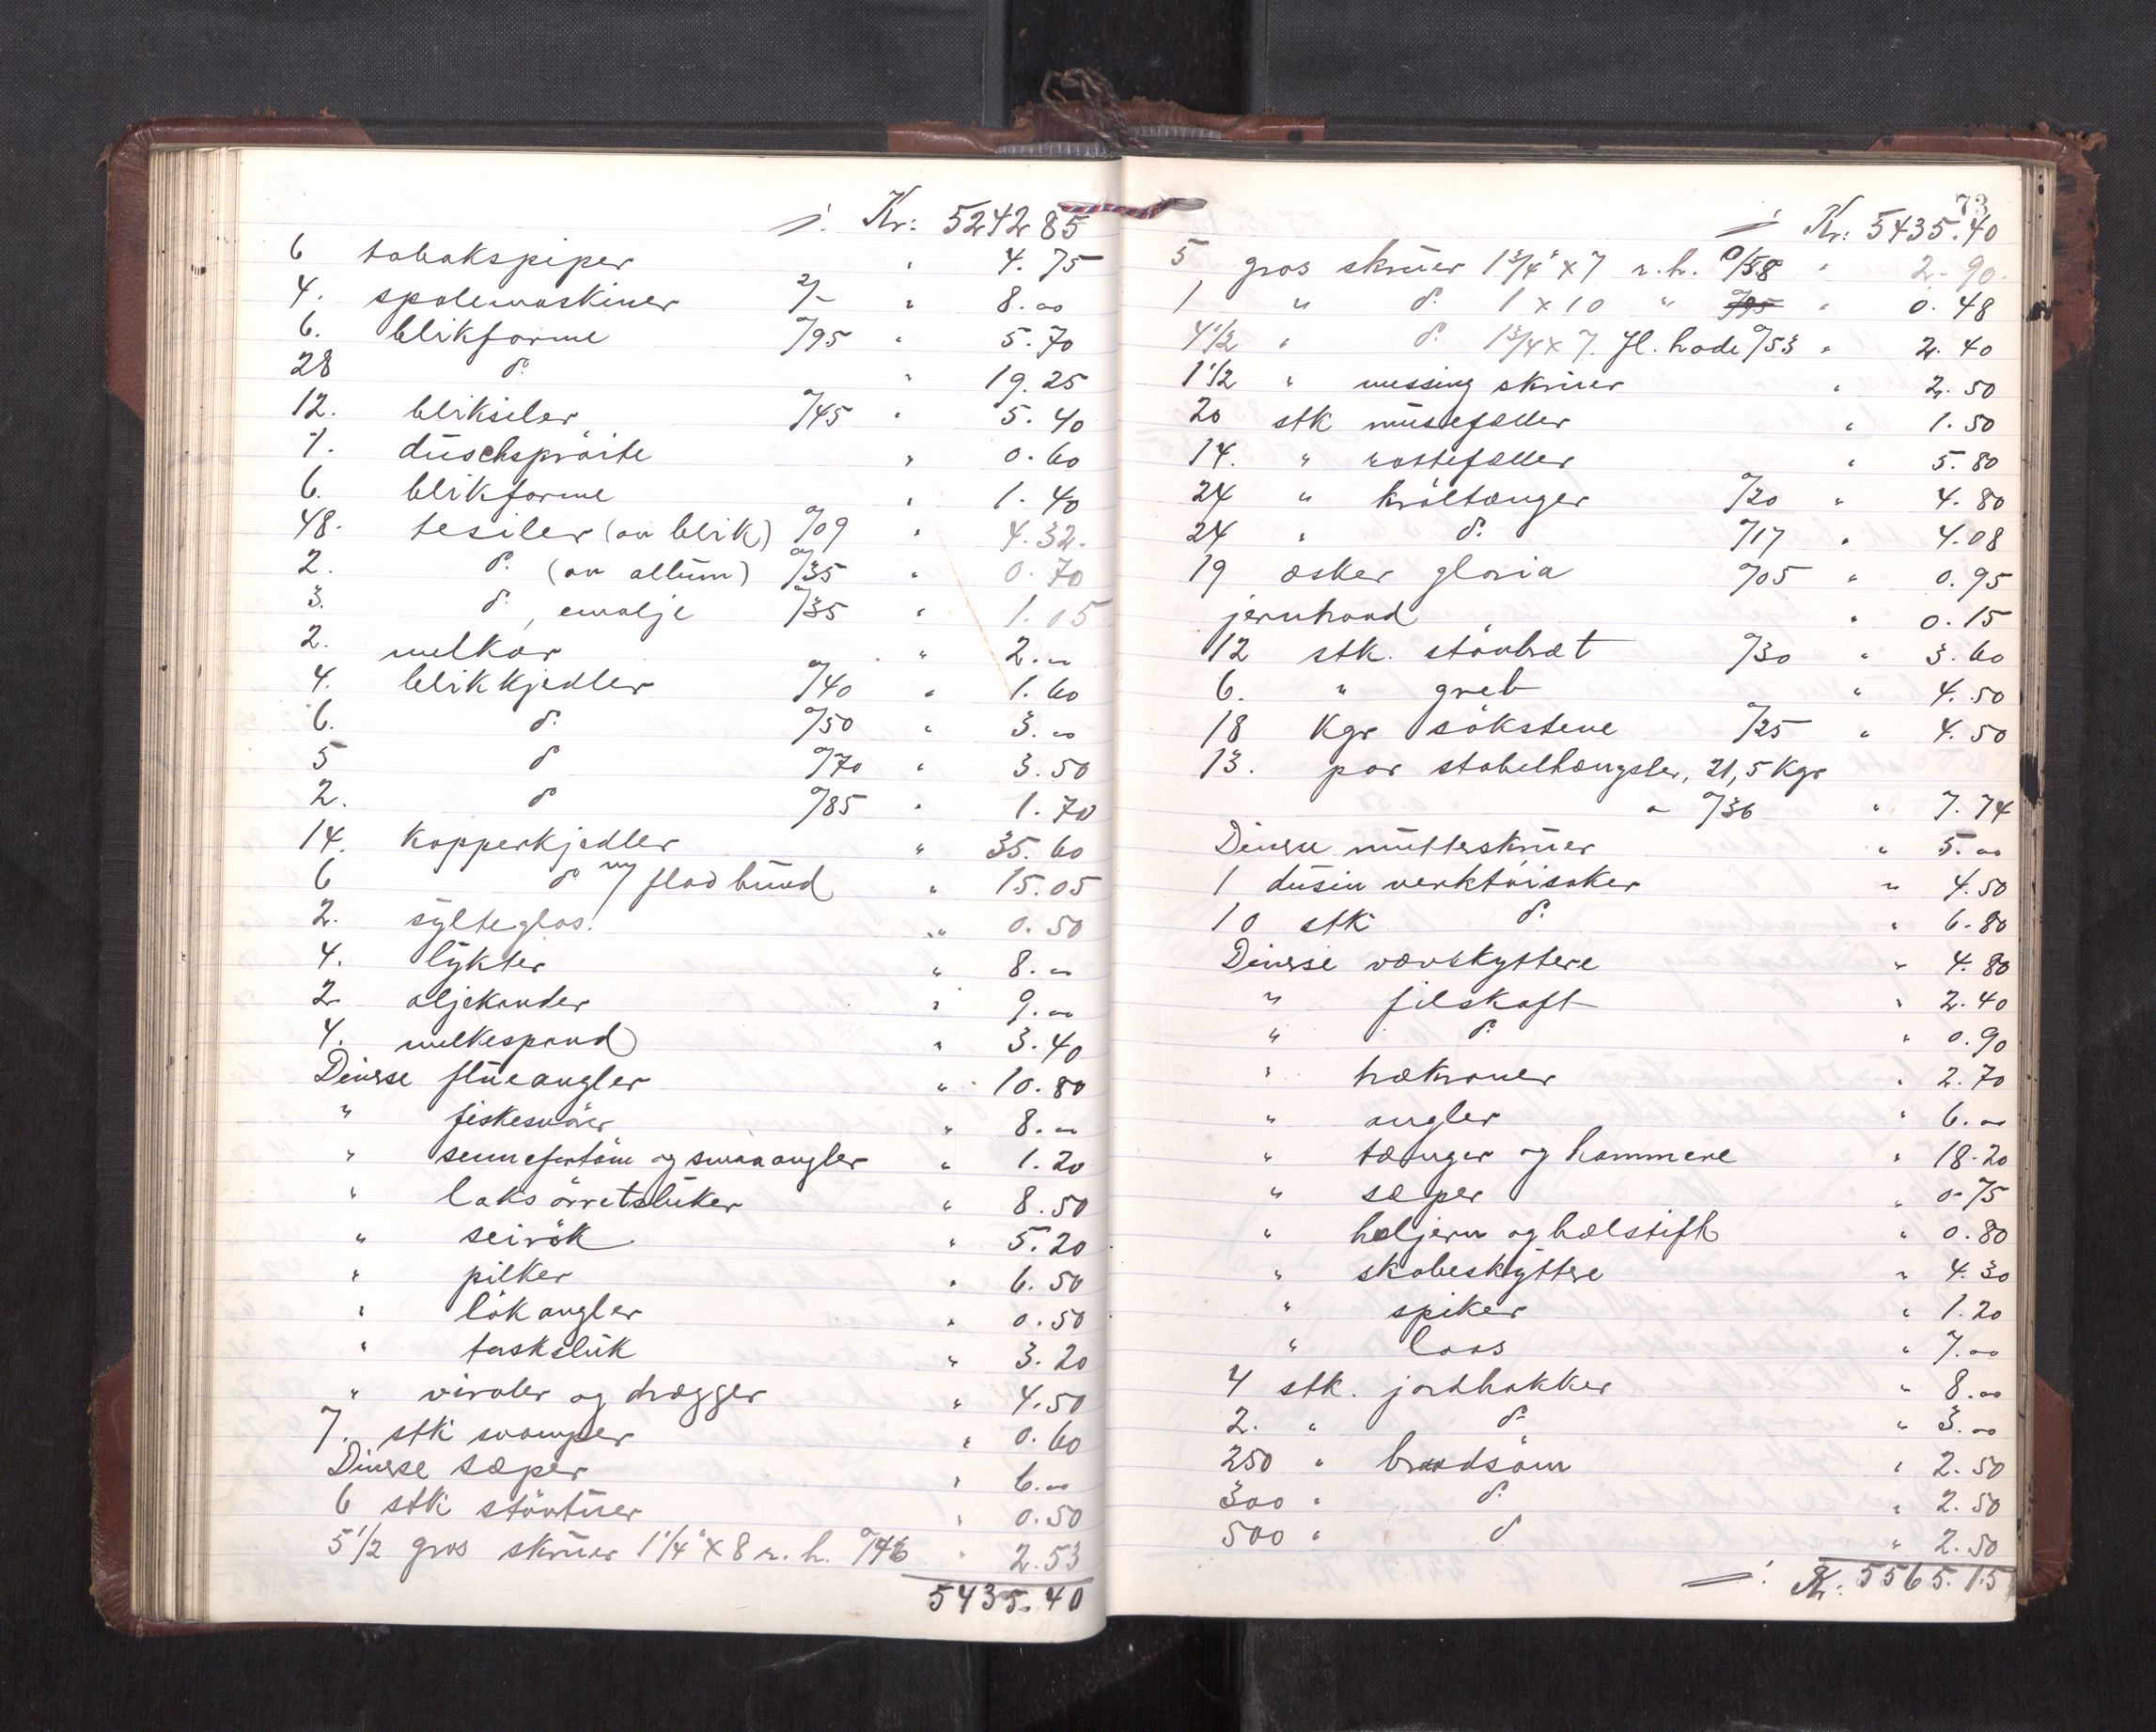 ÷ Kr: 5242 85
6 tobakspiper " 4.75
4. spolemaskiner 2/- " 8.00
6. blikforme 0/95 " 5.70
28 d. " 19.25
12. bliksiler 0/45 " 5.40
1. duschspröite " 0.60
6. blikforme " 1.40
48. tesiler (av blik) 0/09 " 4.32.
2. d. (av allum) 0/35 " 0.70
3. d. , emalje 0/35 " 1.05
2. melkar " 2.00
4. blikkjedler 0/40 " 1.60
6. d. 0/50 " 3.00
5 d 0/70 " 3.50
2. d 0/85 " 1.70
14. kopperkjedler " 35.60
6 d m/ flad bund " 15.05
2. sylteglas. " 0.50
4. lykter " 8.00
2 oljekander " 9.00
4. melkespand " 3.40
Diverse flueangler " 10.80
" fiskesnörer " 8.00
" sennefortöm og smaaangler " 1.20
" laks örretsluker " 8.50
" seirök " 5.20
" pilker " 6.50
" lökangler " 0.50
" torsksluk " 3.20
" viraler og drægger " 4.50
7. stk svamper " 0.60
Diverse sæper " 6.00
6 stk stövtuer " 0.50
5 1/2 gros skruer 1 1/4" x 8 r.h. 0/46 " 2.53
5435.40
73
÷ Kr: 5435.40
5 gros skruer 1 3/4" x 7 r.h. 0/58 " 2.90.
1 " d. 1 x 10 " 0/95 " 0.48
4 1/2 " d. 1 3/4 x 7. fl. hode 0/53 " 2.40
1 1/2 " messing skruer " 2.50
20 stk musefæller " 1.50
14. " rottefæller " 5.80
24 " kröltænger 0/20 " 4.80
24 " d. 0/17 " 4.08
19 æsker gloria 0/05 " 0.95
jernhand " 0.15
12 stk. stövbræt 0/30 " 3.60
6. " greb " 4.50
18 Kgr sökstene 0/25 " 4.50
13. par stabelhængsler, 21,5 Kgr
a 0/36 " 7.74
Diverse mutterskruer " 5.00
1 dusin verktöisaker " 4.50
10 stk d. " 6.80
Diverse vævskyttere " 4.80
" filskaft " 2.40
" d. " 0.90
" trækraner " 2.70
" angler " 6.00
" tænger og hammere " 18.20
" sæper " 0.75
" hæljern og hælstift " 0.80
" skobeskyttere " 4.30
" spiker " 1.20
" laas " 7.00
4 stk. jordhakker " 8.00
2. " d. " 3.00
250 " brodsöm " 2.50
300 " d. " 2.50
500 " d " 2.50
÷ Kr. 5565.15